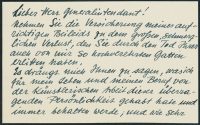 Lieber Herr Generalintendant!
Nehmen Sie die Versicherung meines auf-
richtigen Beileids zu dem großen, schmerz-
lichen Verlust, den Sie durch den Tod Ihrer
auch von mir so hochverehrten Gattin
erlitten haben.
Es drängt mich Ihnen zu sagen, wie ich
für mein Leben und meinen Beruf von
der künstlerischen Arbeit dieser überra-
genden Persönlichkeit gehabt habe und
immer behalten werde, und wie sehr